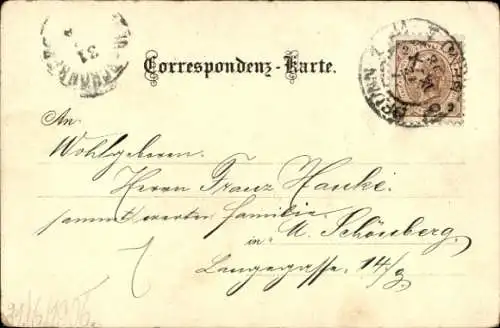 Correspondenz-Karte.
An
Wohlgeboren
Herrn Franz Hauke.
sammt werten Familie
in M. Schönberg.
Langegasse 14/
31